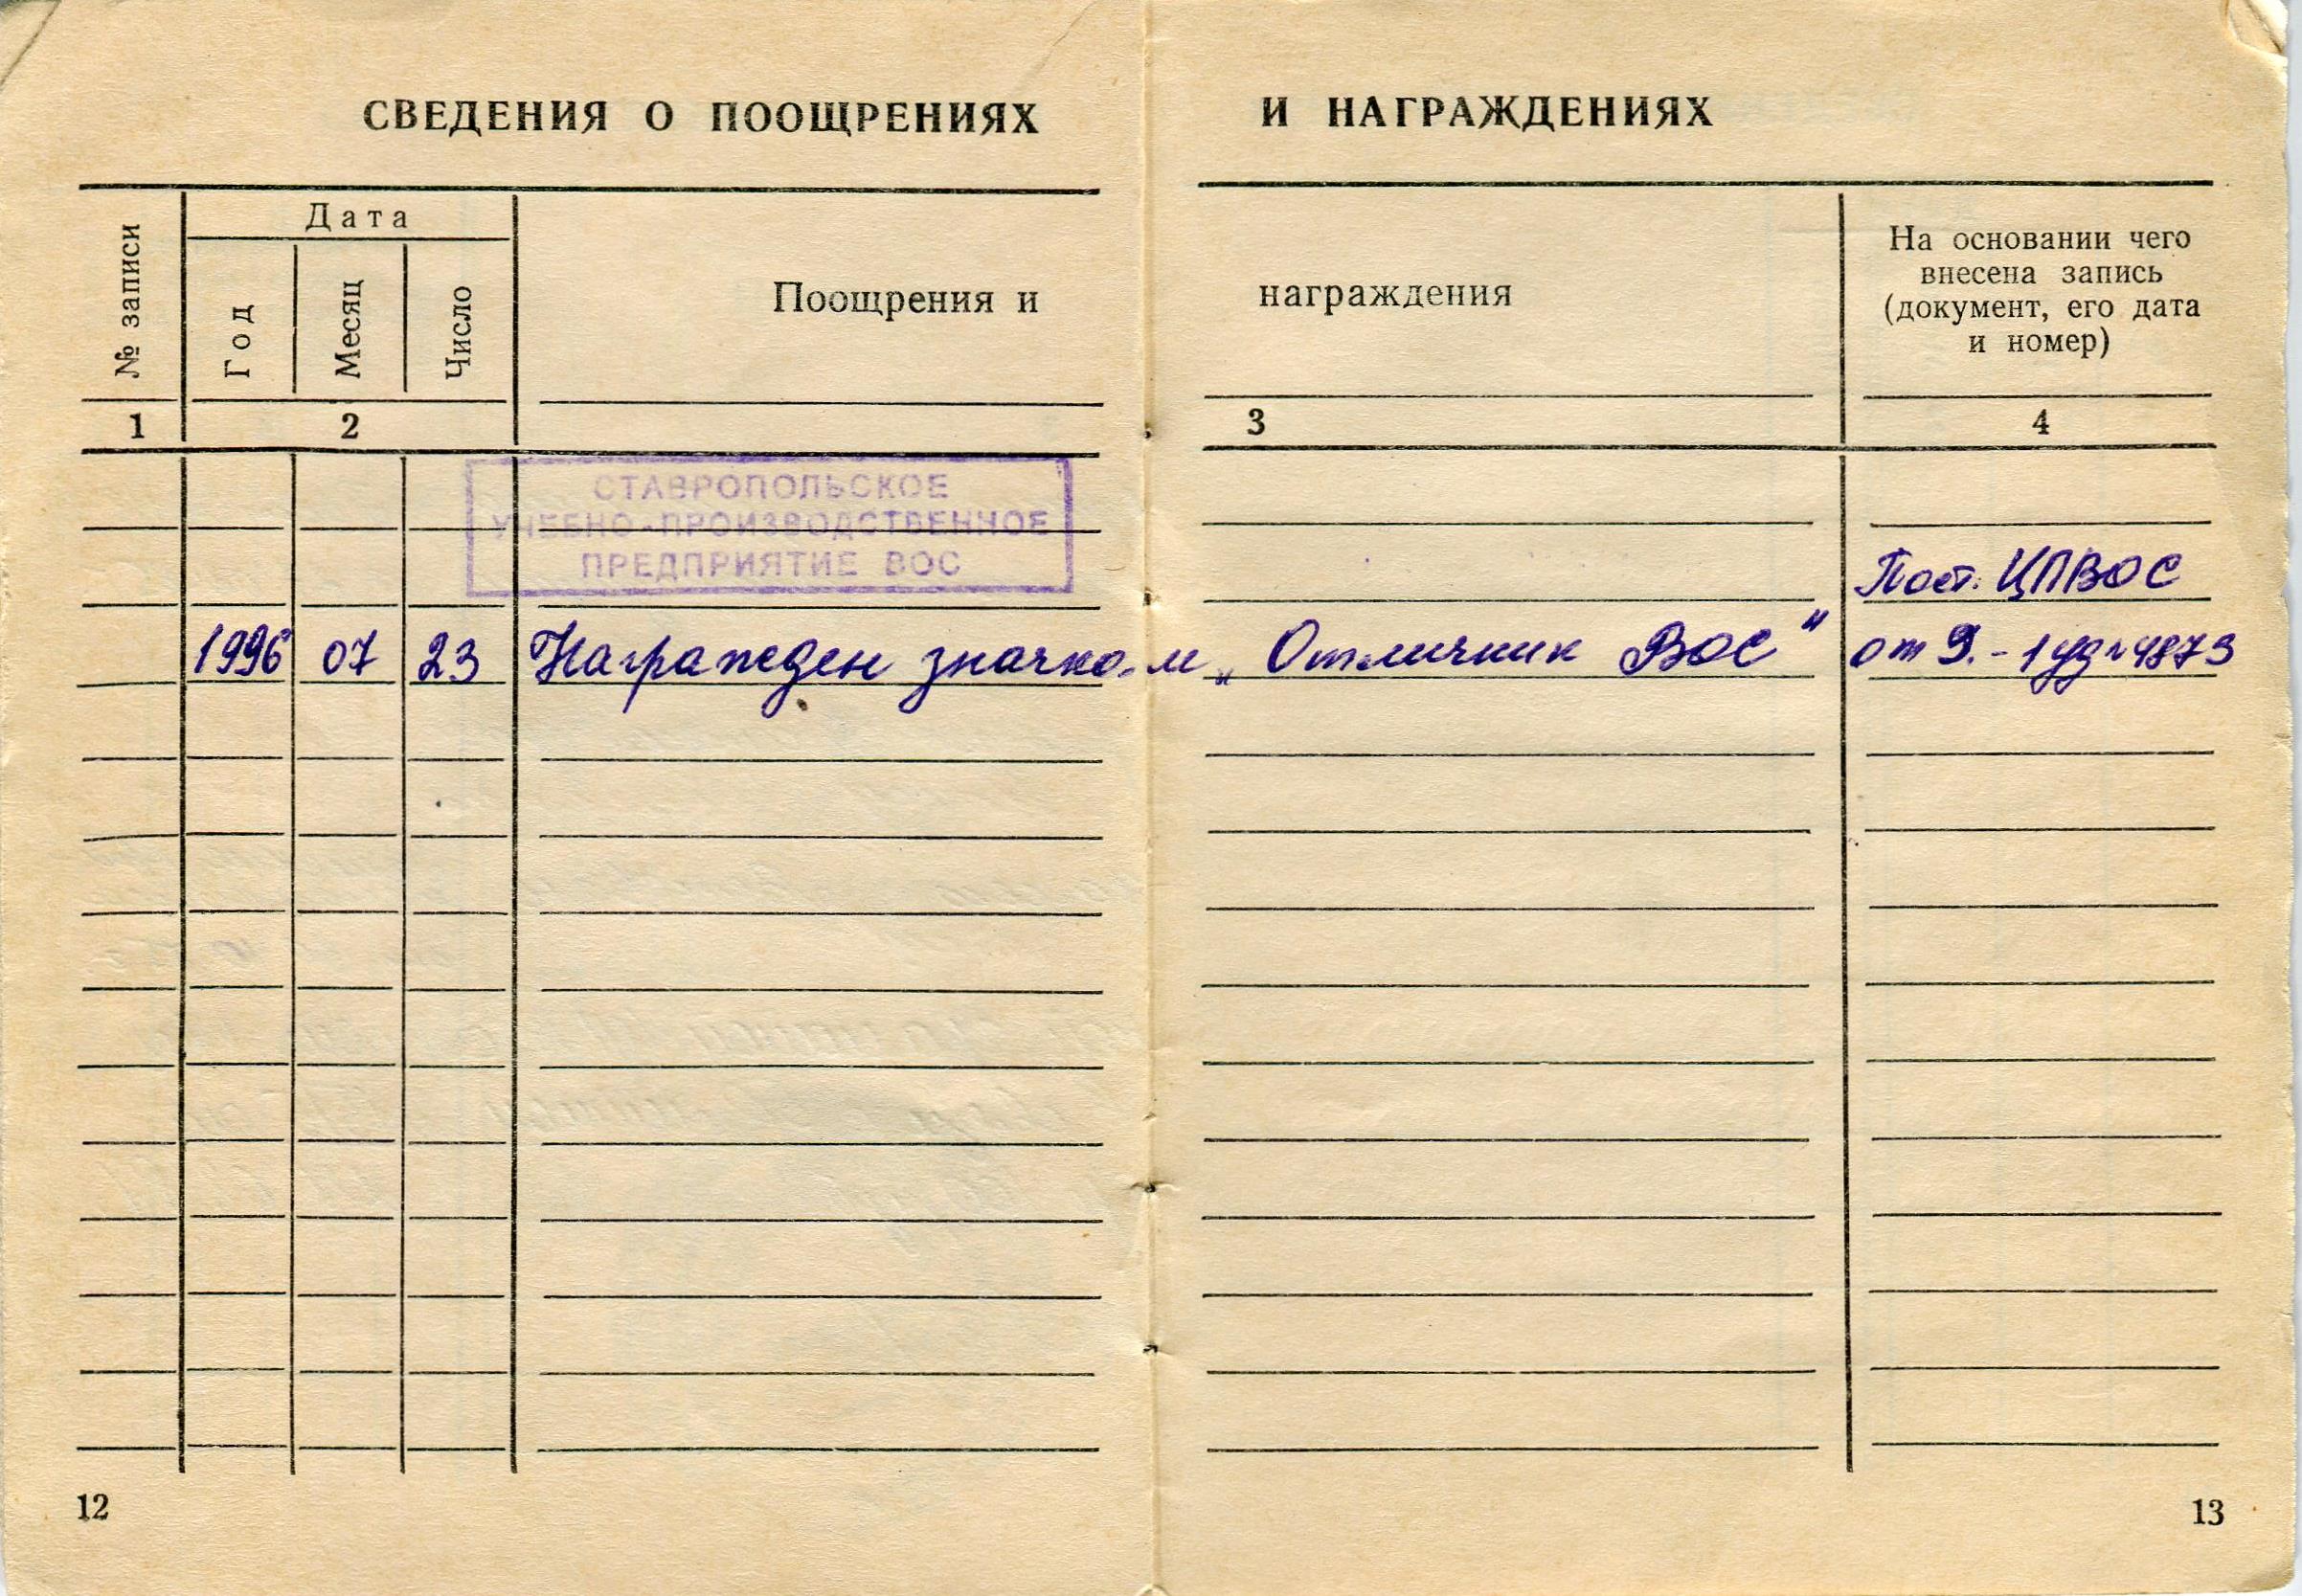 СВЕДЕНИЯ О ПООЩРЕНИЯХ И НАГРАЖДЕНИЯХ
№ записи
Дата
Год
Месяц
Число
Поощрения и награждения
На основании чего
внесена запись
(документ, его дата
и номер)
1 2 3 4
СТАВРОПОЛЬСКОЕ
УЧЕБНО-ПРОИЗВОДСТВЕННОЕ
ПРЕДПРИЯТИЕ ВОС
Пост. ЦПВОС
1996 07 23 Награжден значком „Отличник ВОС" от 9.
12
13